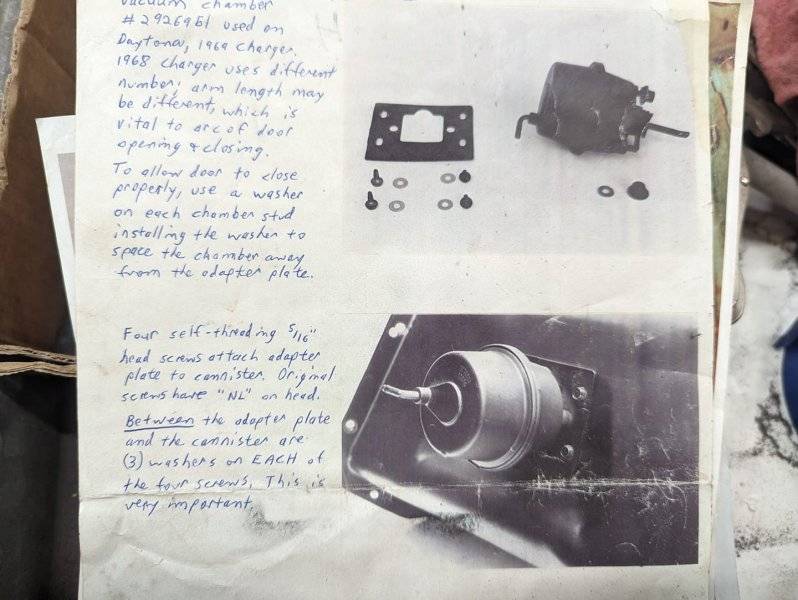 vacuum chamber
#2926951 used on
Daytona, 1969 Charger.
1968 Charger uses different
number; arm length may
be different, which is
vital to arc of door
opening & closing.
To allow door to close
properly, use a washer
on each chamber stud
installing the washer to
space the chamber away
from the adapter plate.
Four self-threading 5/16"
head screws attach adapter
plate to cannister. Original
screws have "NL" on head.
Between the adapter plate
and the cannister are
(3) washers on EACH of
the four screws. This is
very important.